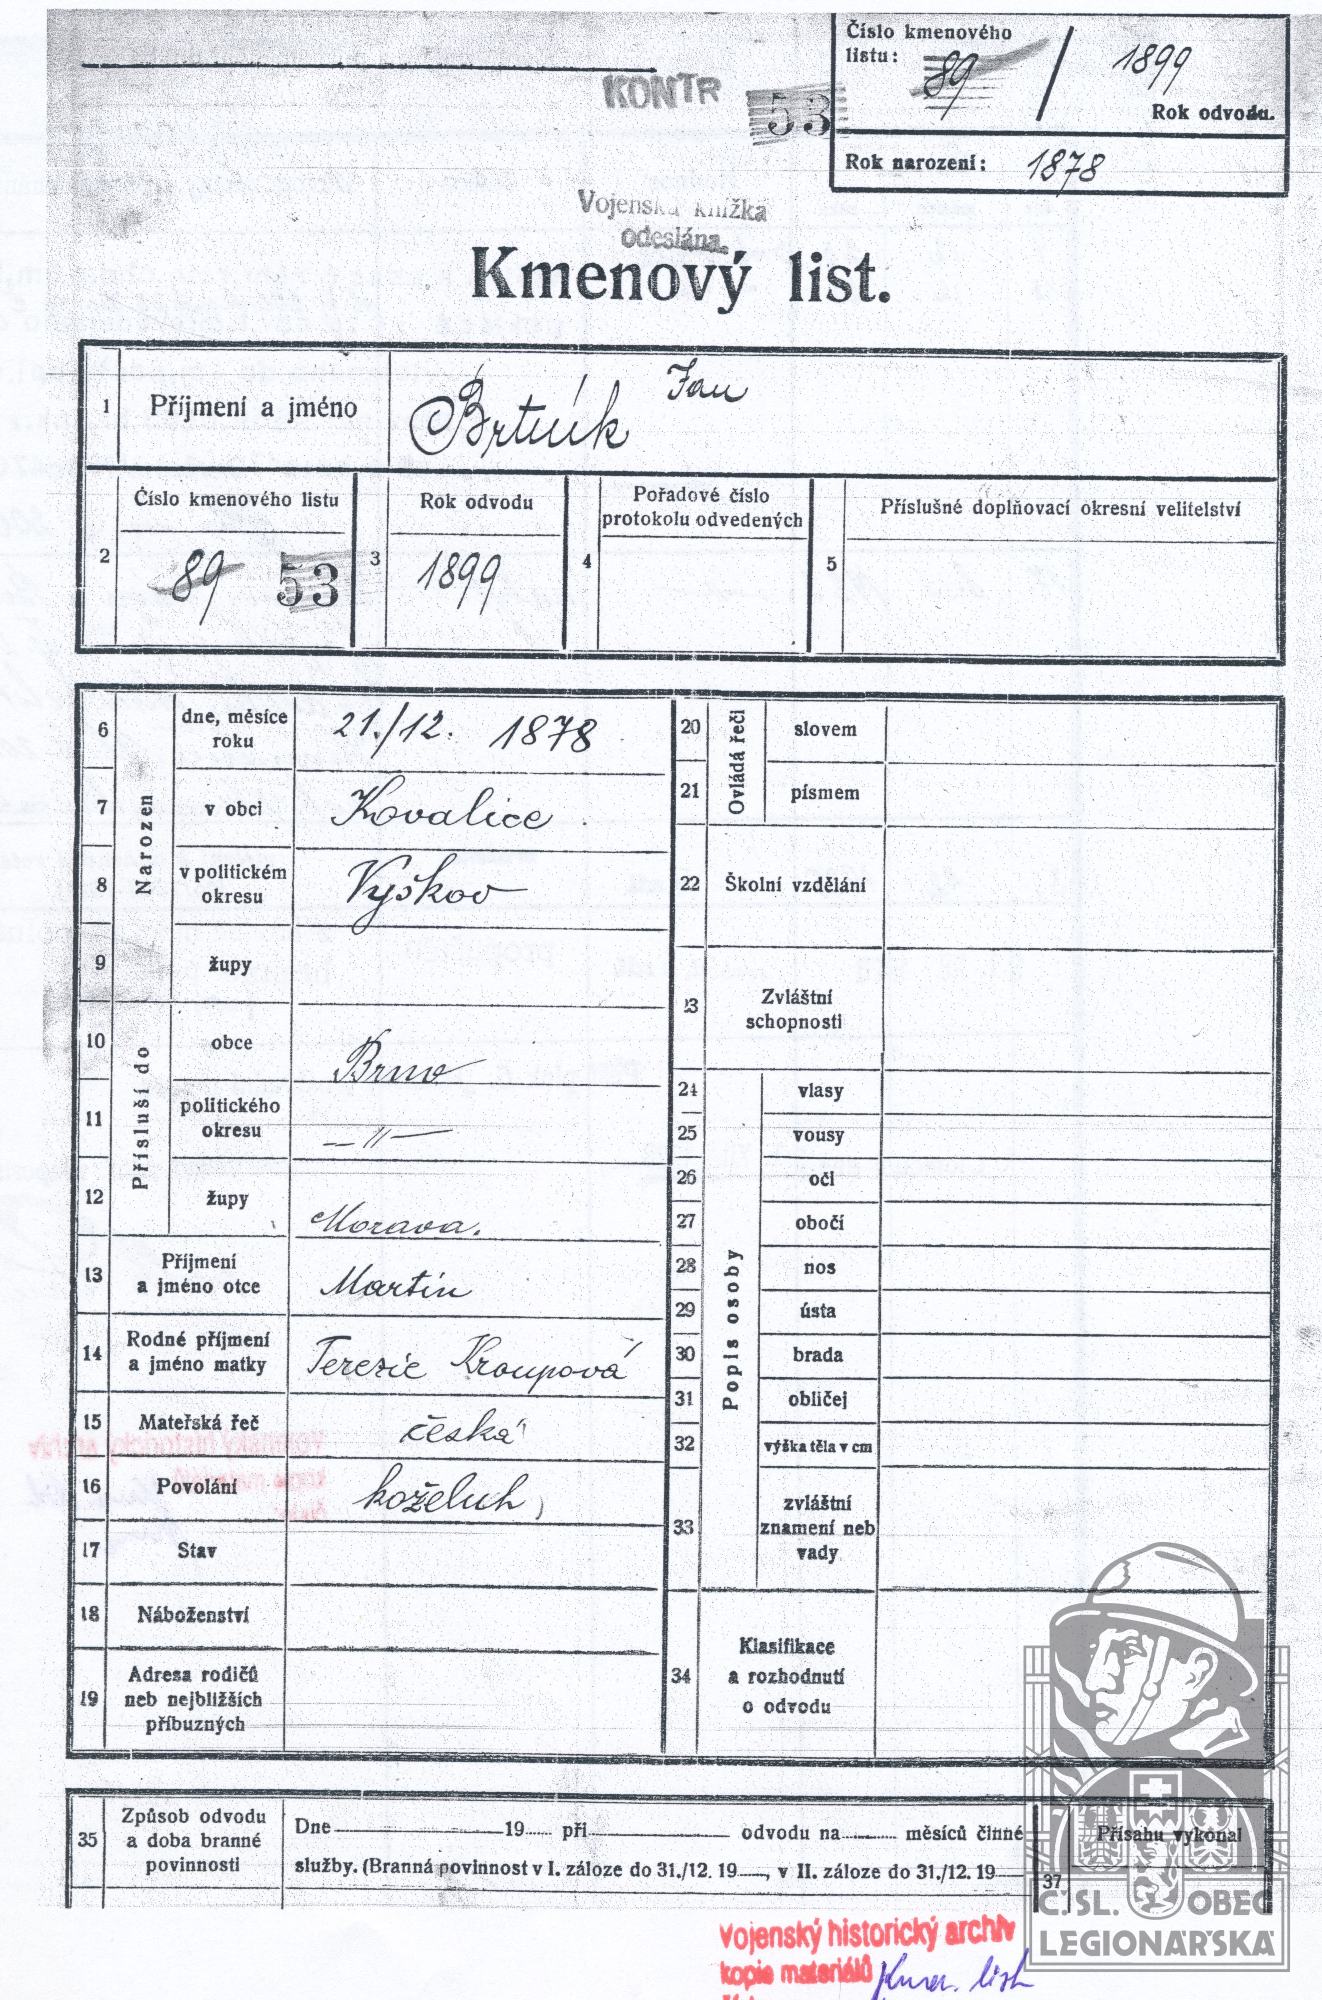 Číslo kmenového
listu: 89 / 1899
Rok odvodu.
KONTR
53
Rok narození: 1878
Vojenská knížka
odeslána.
Kmenový list.
1 Příjmení a jméno Brtník Jan
2 Číslo kmenového listu 89 53
3 Rok odvodu 1899
4 Pořadové číslo
protokolu odvedených
5 Příslušné doplňovací okresní velitelství
Narozen
6 dne, měsíce
roku 21./12. 1878
7 v obci Kovalice
8 v politickém
okresu Vyškov
9 župy
Přísluší do
10 obce Brno
11 politického
okresu —"—
12 župy Morava.
13 Příjmení
a jméno otce Martin
14 Rodné příjmení
a jméno matky Terezie Kroupová
15 Mateřská řeč česká
16 Povolání koželuh
17 Stav
18 Náboženství
19 Adresa rodičů
neb nejbližších
příbuzných
Ovládá řeči
20 slovem
21 písmem
22 Školní vzdělání
23 Zvláštní
schopnosti
Popis osoby
24 vlasy
25 vousy
26 oči
27 obočí
28 nos
29 ústa
30 brada
31 obličej
32 výška těla v cm
33 zvláštní
znamení neb
vady
34 Klasifikace
a rozhodnutí
o odvodu
35 Způsob odvodu
a doba branné
povinnosti
Dne 19 při odvodu na měsíců činné
služby. (Branná povinnost v I. záloze do 31./12. 19 , v II. záloze do 31./12. 19
37 Přísahu vykonal
Č. SL. OBEC
LEGIONÁŘSKÁ
Vojenský historický archiv
kopie materiálů Kmen. list